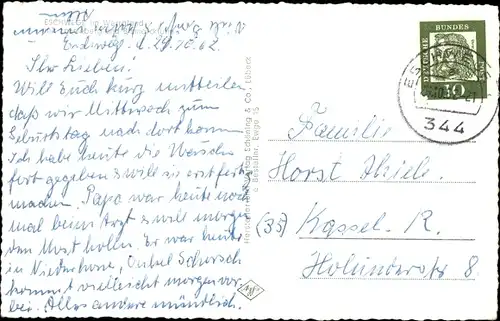 ESCHWEGE im Wehretal
Eschwege, d. 29.10.62.
Ihr Lieben!
Will Euch kurz mitteilen
daß wir Mittwoch zum
Geburtstag nach dort komm
Ich habe heute die Waschm
fort gegeben & will sie erst fert
machen. Papa war heute noch
mal beim Arzt & will morgen
den Most holen. Er war heute
in Niederhone, Onkel Schorsch
kommt vielleicht morgen vor-
bei. Alles andere mündlich.
Viele
Herstellung Verlag Schöning & Co., Lübeck
DEUTSCHE BUNDES
10
344
Familie
Horst Thiele.
(35) Kassel-R.
Holunderstr 8.